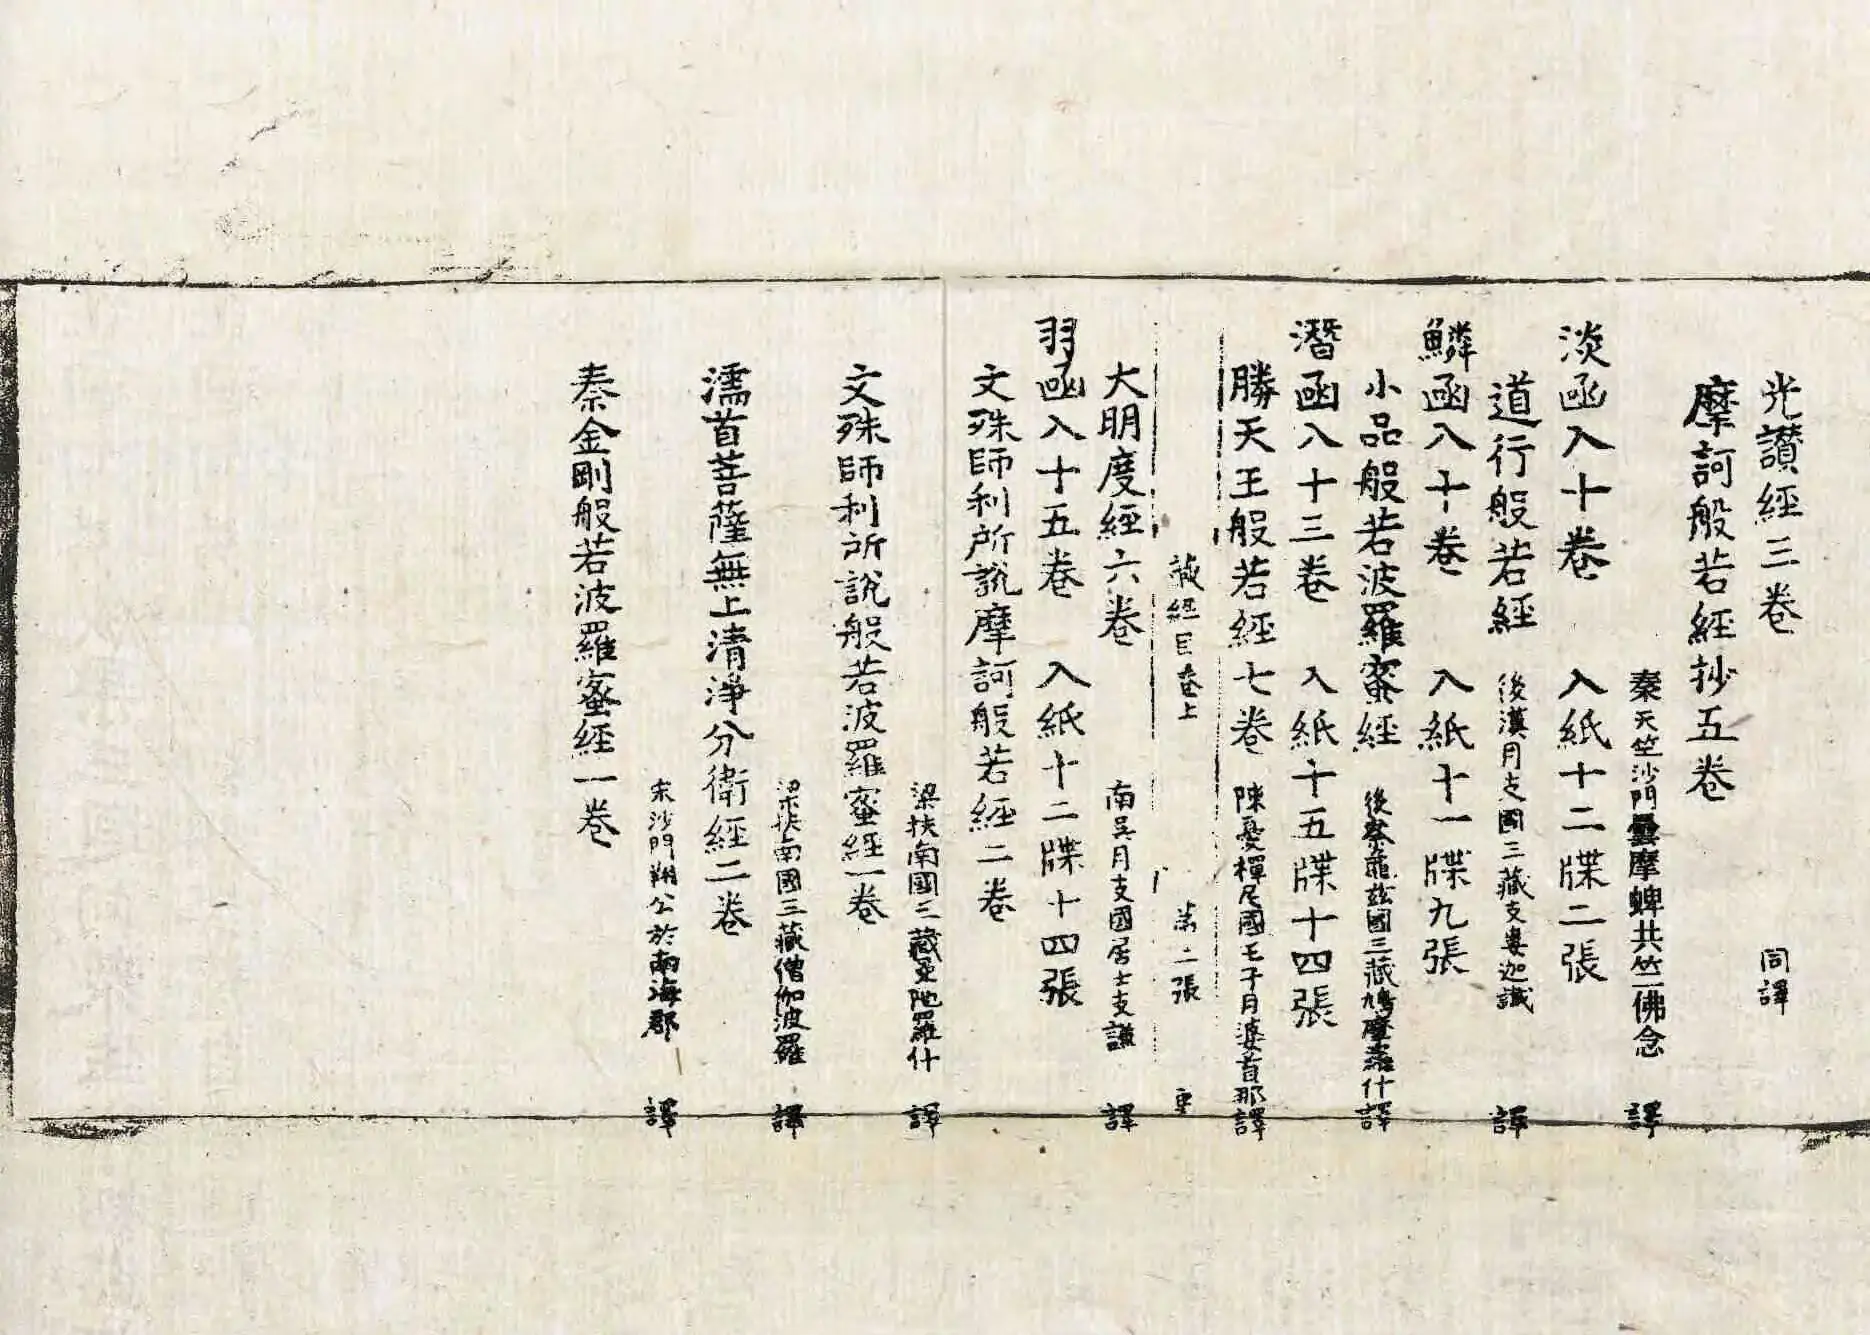 光讃經三卷 同譯
摩訶般若經抄五卷
秦天竺沙門曇摩蜱共竺佛念 譯
淡函入十卷 入紙十二牒二張
道行般若經 後漢月支國三藏支婁迦讖 譯
鱗函入十卷 入紙十一牒九張
小品般若波羅蜜經 後秦龜玆國三藏鳩摩羅什譯
潛函入十三卷 入紙十五牒十四張
勝天王般若經七卷 陳憂禪尼國王子月婆首那譯
藏經目卷上 第二張
大明度經六卷 南吳月支國居士支謙 譯
羽函入十五卷 入紙十二牒十四張
文殊師利所說摩訶般若經二卷
梁扶南國三藏 羅什 譯
文殊師利所說般若波羅蜜經一卷
梁扶南國三藏僧伽波羅 譯
濡首菩薩無上清淨分衛經二卷
宋沙門翔公於南海郡 譯
秦金剛般若波羅蜜經一卷